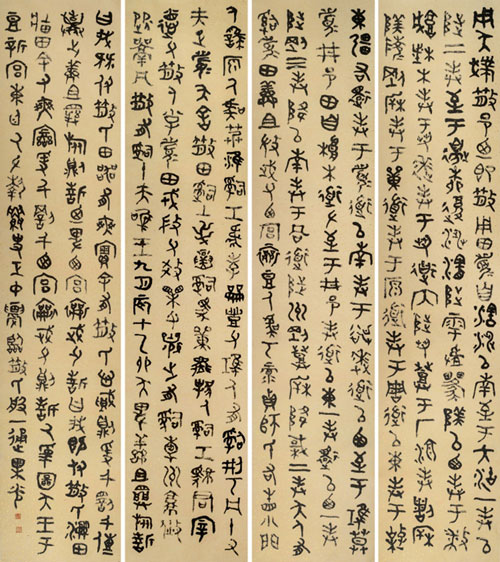 用夨散邑乃即散用田眉自瀗涉以南至于大沽一封以
陟二封至于邊柳復涉瀗陟雩𨻚以西封于
播城楮木封于芻逨封于芻道內陟芻登于厂湶封諸𣂪
𨻚陵剛𣂪封于單道封于原道封于周道以東封于棹
東疆右還封于眉道以南封于逨道以西至于鴻莫
眉井邑田自桹木道左至于井邑封道以東一封還以西一封
陟剛三封降以南封于同道陟州剛登𣂪降棫二封夨人有
司眉田鮮且微武父西宮襄豆人虞丂彔貞師氏右眚小門
人繇原人虞艿淮司工虎孝豐父鴻人有司刑丂凡十又
五夫正眉夨舍散田司土逆寅司馬單人司工君宰
德父散人小子眉田戎微父效父襄之有司橐州攸
從鬲凡散有司十夫唯王九月辰在乙卯夨卑鮮且旅誓
曰我既付散氏田器有爽實余有散氏心賊則爰千罰千傳
棄之鮮且旅則誓乃卑西宮襄武父誓曰我既付散氏濕田
牆田余有爽變爰千罰千西宮襄武父則誓厥受圖夨王于
豆新宮東廷厥左執史正中農臨散氏一過